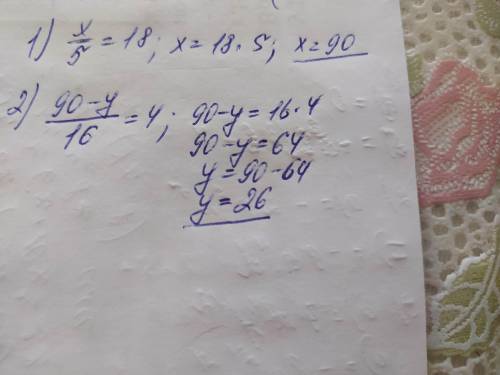 1) x/5 = 18; x = 18 · 5; x = 90
2) 90 - y/16 = 4; 90 - y = 16 · 4
90 - y = 64
y = 90 - 64
y = 26